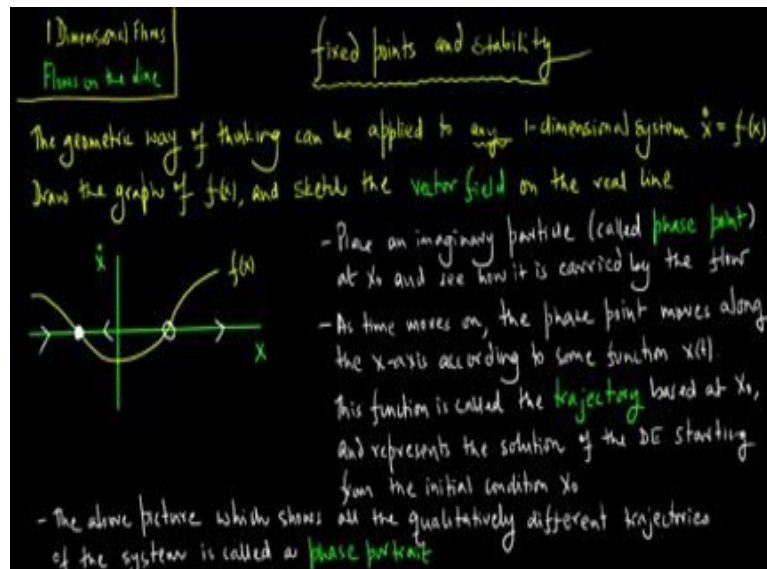 1 Dimensional Flows
Flows on the line
fixed points and stability
The geometric way of thinking can be applied to any 1-dimensional system ẋ = f(x)
Draw the graph of f(x), and sketch the vector field on the real line
- Place an imaginary particle (called phase point)
at x₀ and see how it is carried by the flow
- As time moves on, the phase point moves along
the x-axis according to some function x(t).
This function is called the trajectory based at x₀,
and represents the solution of the DE starting
from the initial condition x₀
ẋ
f(x)
x
- The above picture which shows all the qualitatively different trajectories
of the system is called a phase portrait